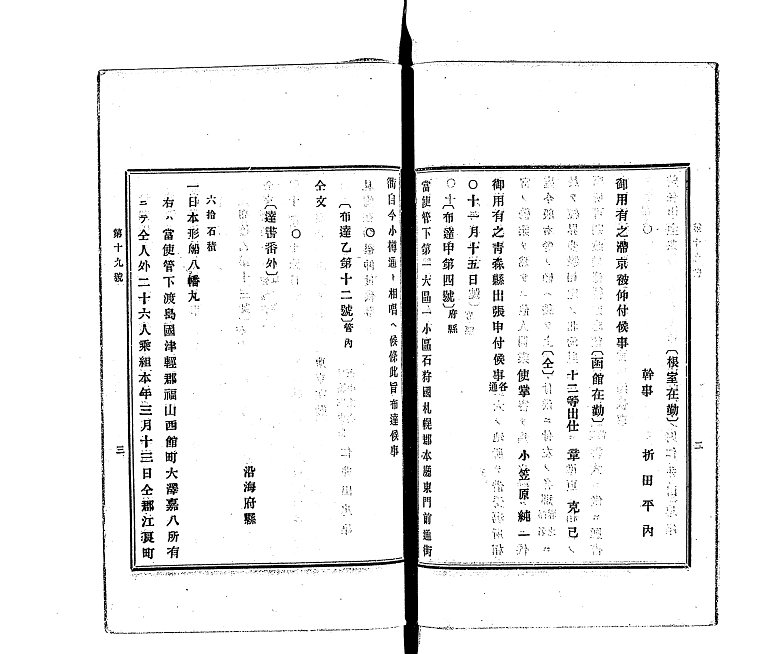 第十九號
二
〔根室在勤〕
幹事 折田平内
御用有之滯京被仰付候事
〔函館在勤〕
十二等出仕 章克己
〔仝〕
使掌 小笠原純一
御用有之青森縣出張申付候事 各通
〇十二月十五日號
〇〔布達甲第四號〕府縣
當使管下第一大區一小區石狩國札幌郡本廳東門前通街
衢自今小樽通ト相唱ヘ候條此旨布達候事
〇
〔布達乙第十二號〕管内
仝文
〇
〔達書番外〕
沿海府縣
六拾石積
一日本形船八幡丸
右ハ當使管下渡島國津輕郡福山西館町大澤嘉八所有
ニテ仝人外二十六人乘組本年三月十三日仝郡江良町
第十九號
三